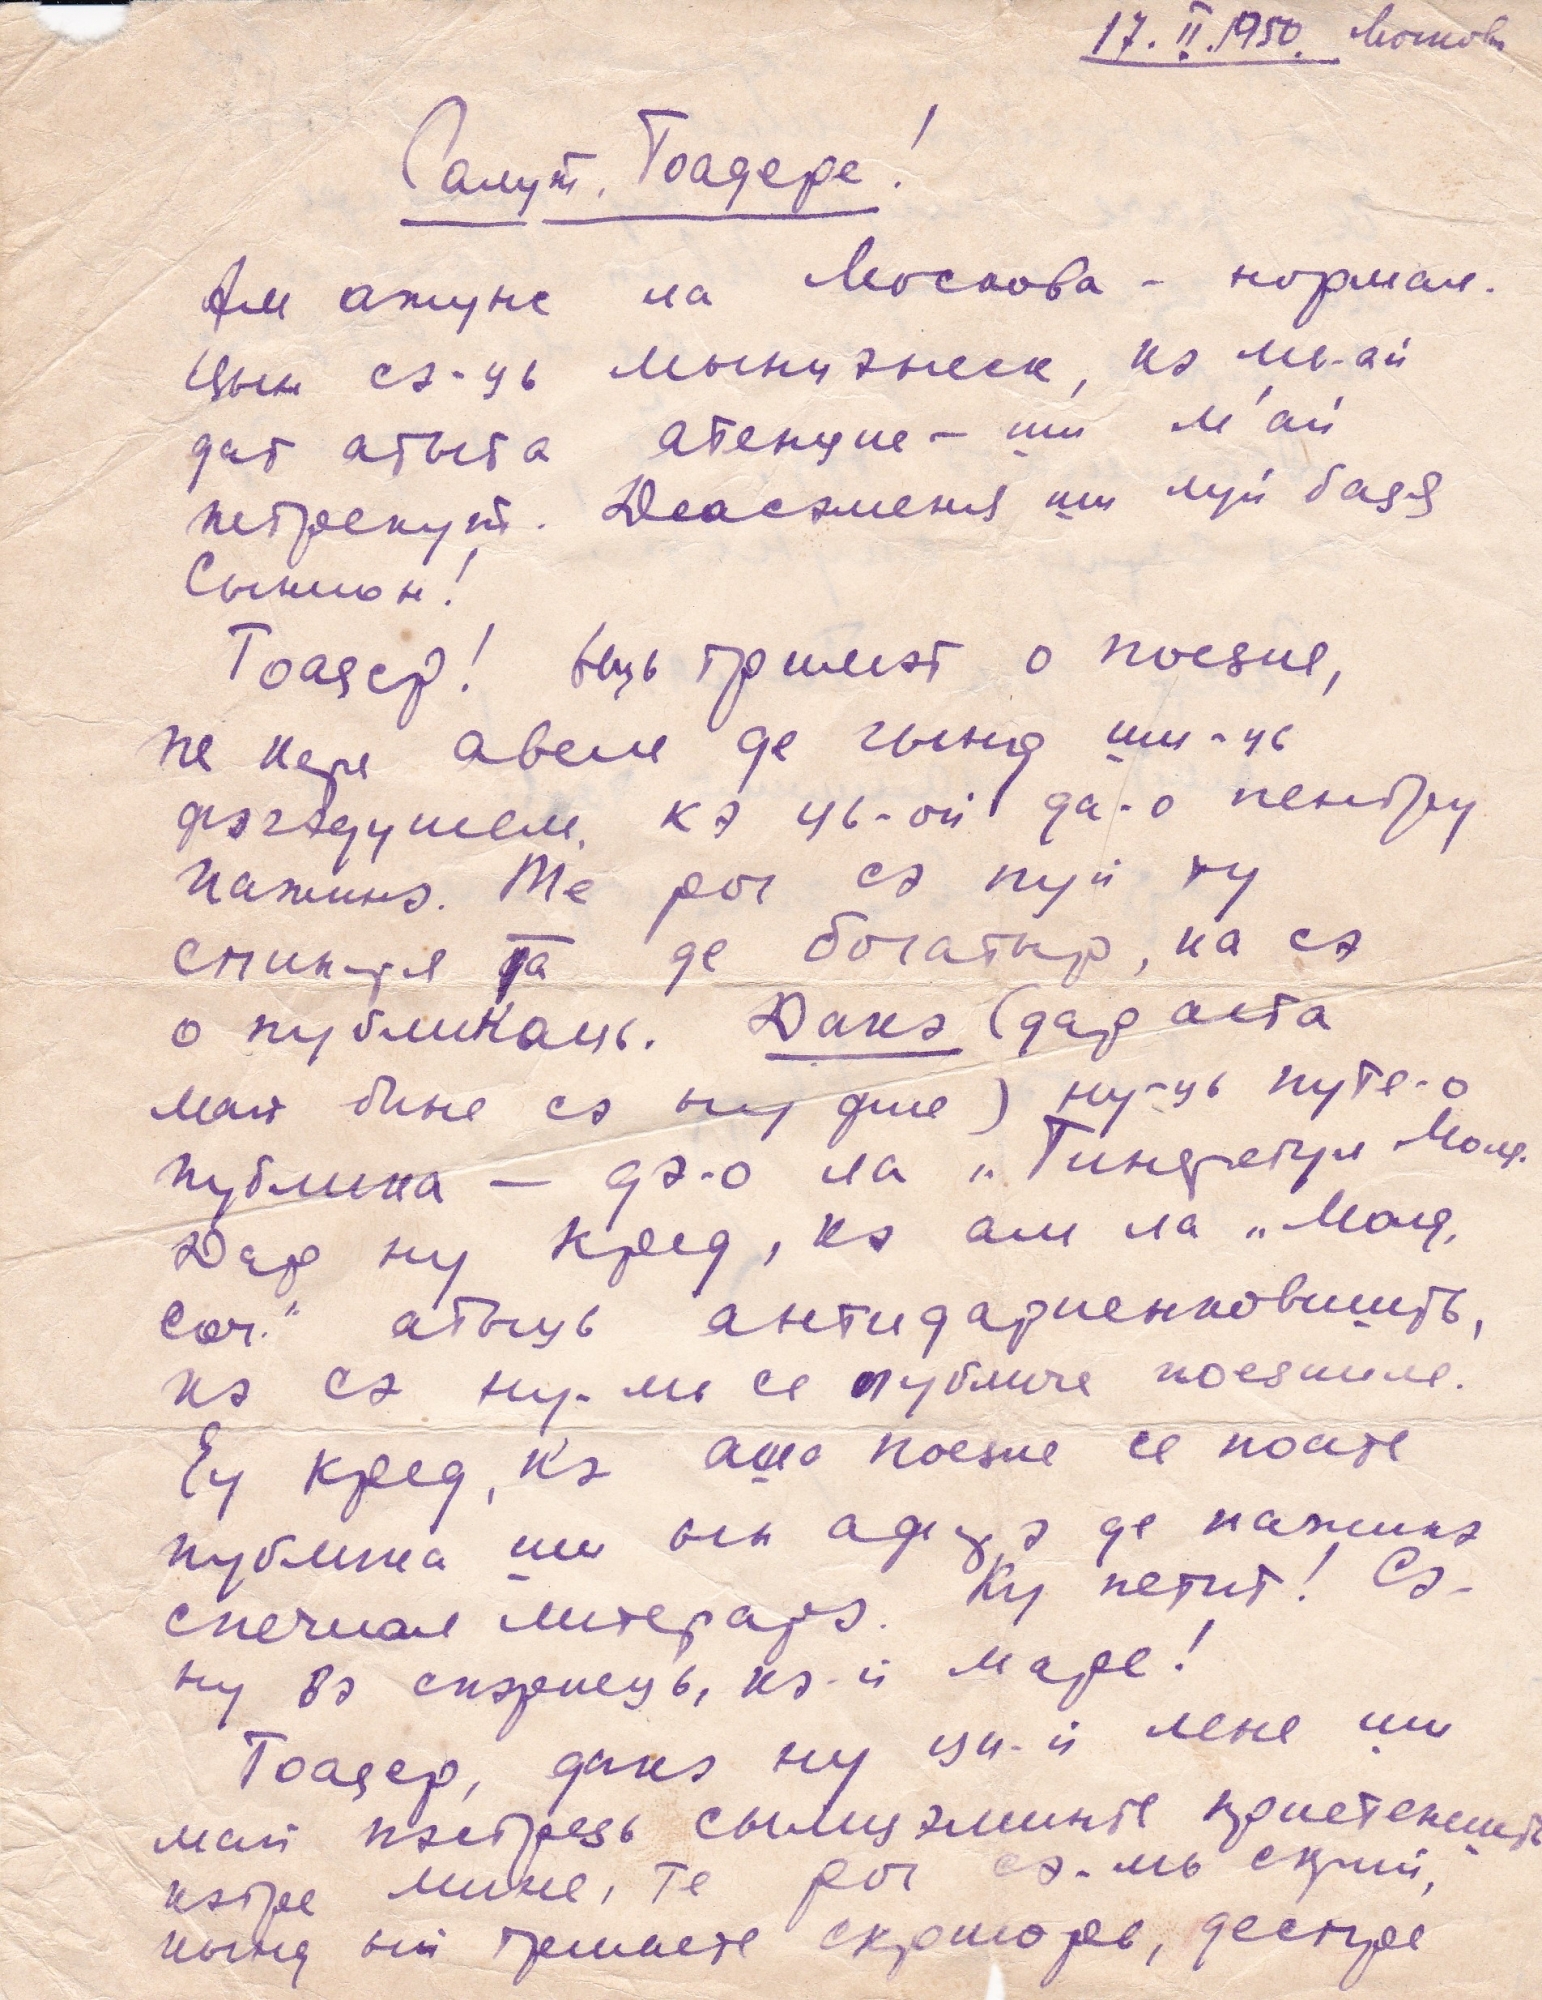 17.II.1950. Москова
Салут, Тоадере!
Ам ажунс ла Москова - нормал.
Цын сэ-ць мынцэмеск, кэ мь-ай
дат атыта атенцие - ши м'ай
петрекут. Деасэменя ши луй бадя
Сымион!
Тоадер! Ыць тримэт о поезие,
пе каре авем де гынд ши-ць
фэгэдуисем, кэ ць-ой да-о пентру
пажинэ. Те рог сэ пуй ту
спинаря та де богатыр, ка сэ
о публикаць. Дакэ (дар аста
май бине сэ ну фие) ну-ць путе-о
публика — дэ-о ла „Тинеретул Молд.
Дар ну кред, кэ ам ла „Молд.
Соч." атыць антидариенковишть,
кэ сэ ну-мь се публиче поезииле.
Еу кред, кэ аша поезие се поате
публика ши ын афарэ де пажинэ
спечиал литерарэ. Ку петит! Сэ-
ну вэ спэриець, кэ-й маре!
Тоадер, дакэ ну ци-й лене ши
май пэстрезь сымцэминте приетенешть
кэтре мине, те рог сэ-мь скрий,
кынд ый тримете скрисорь, деспре